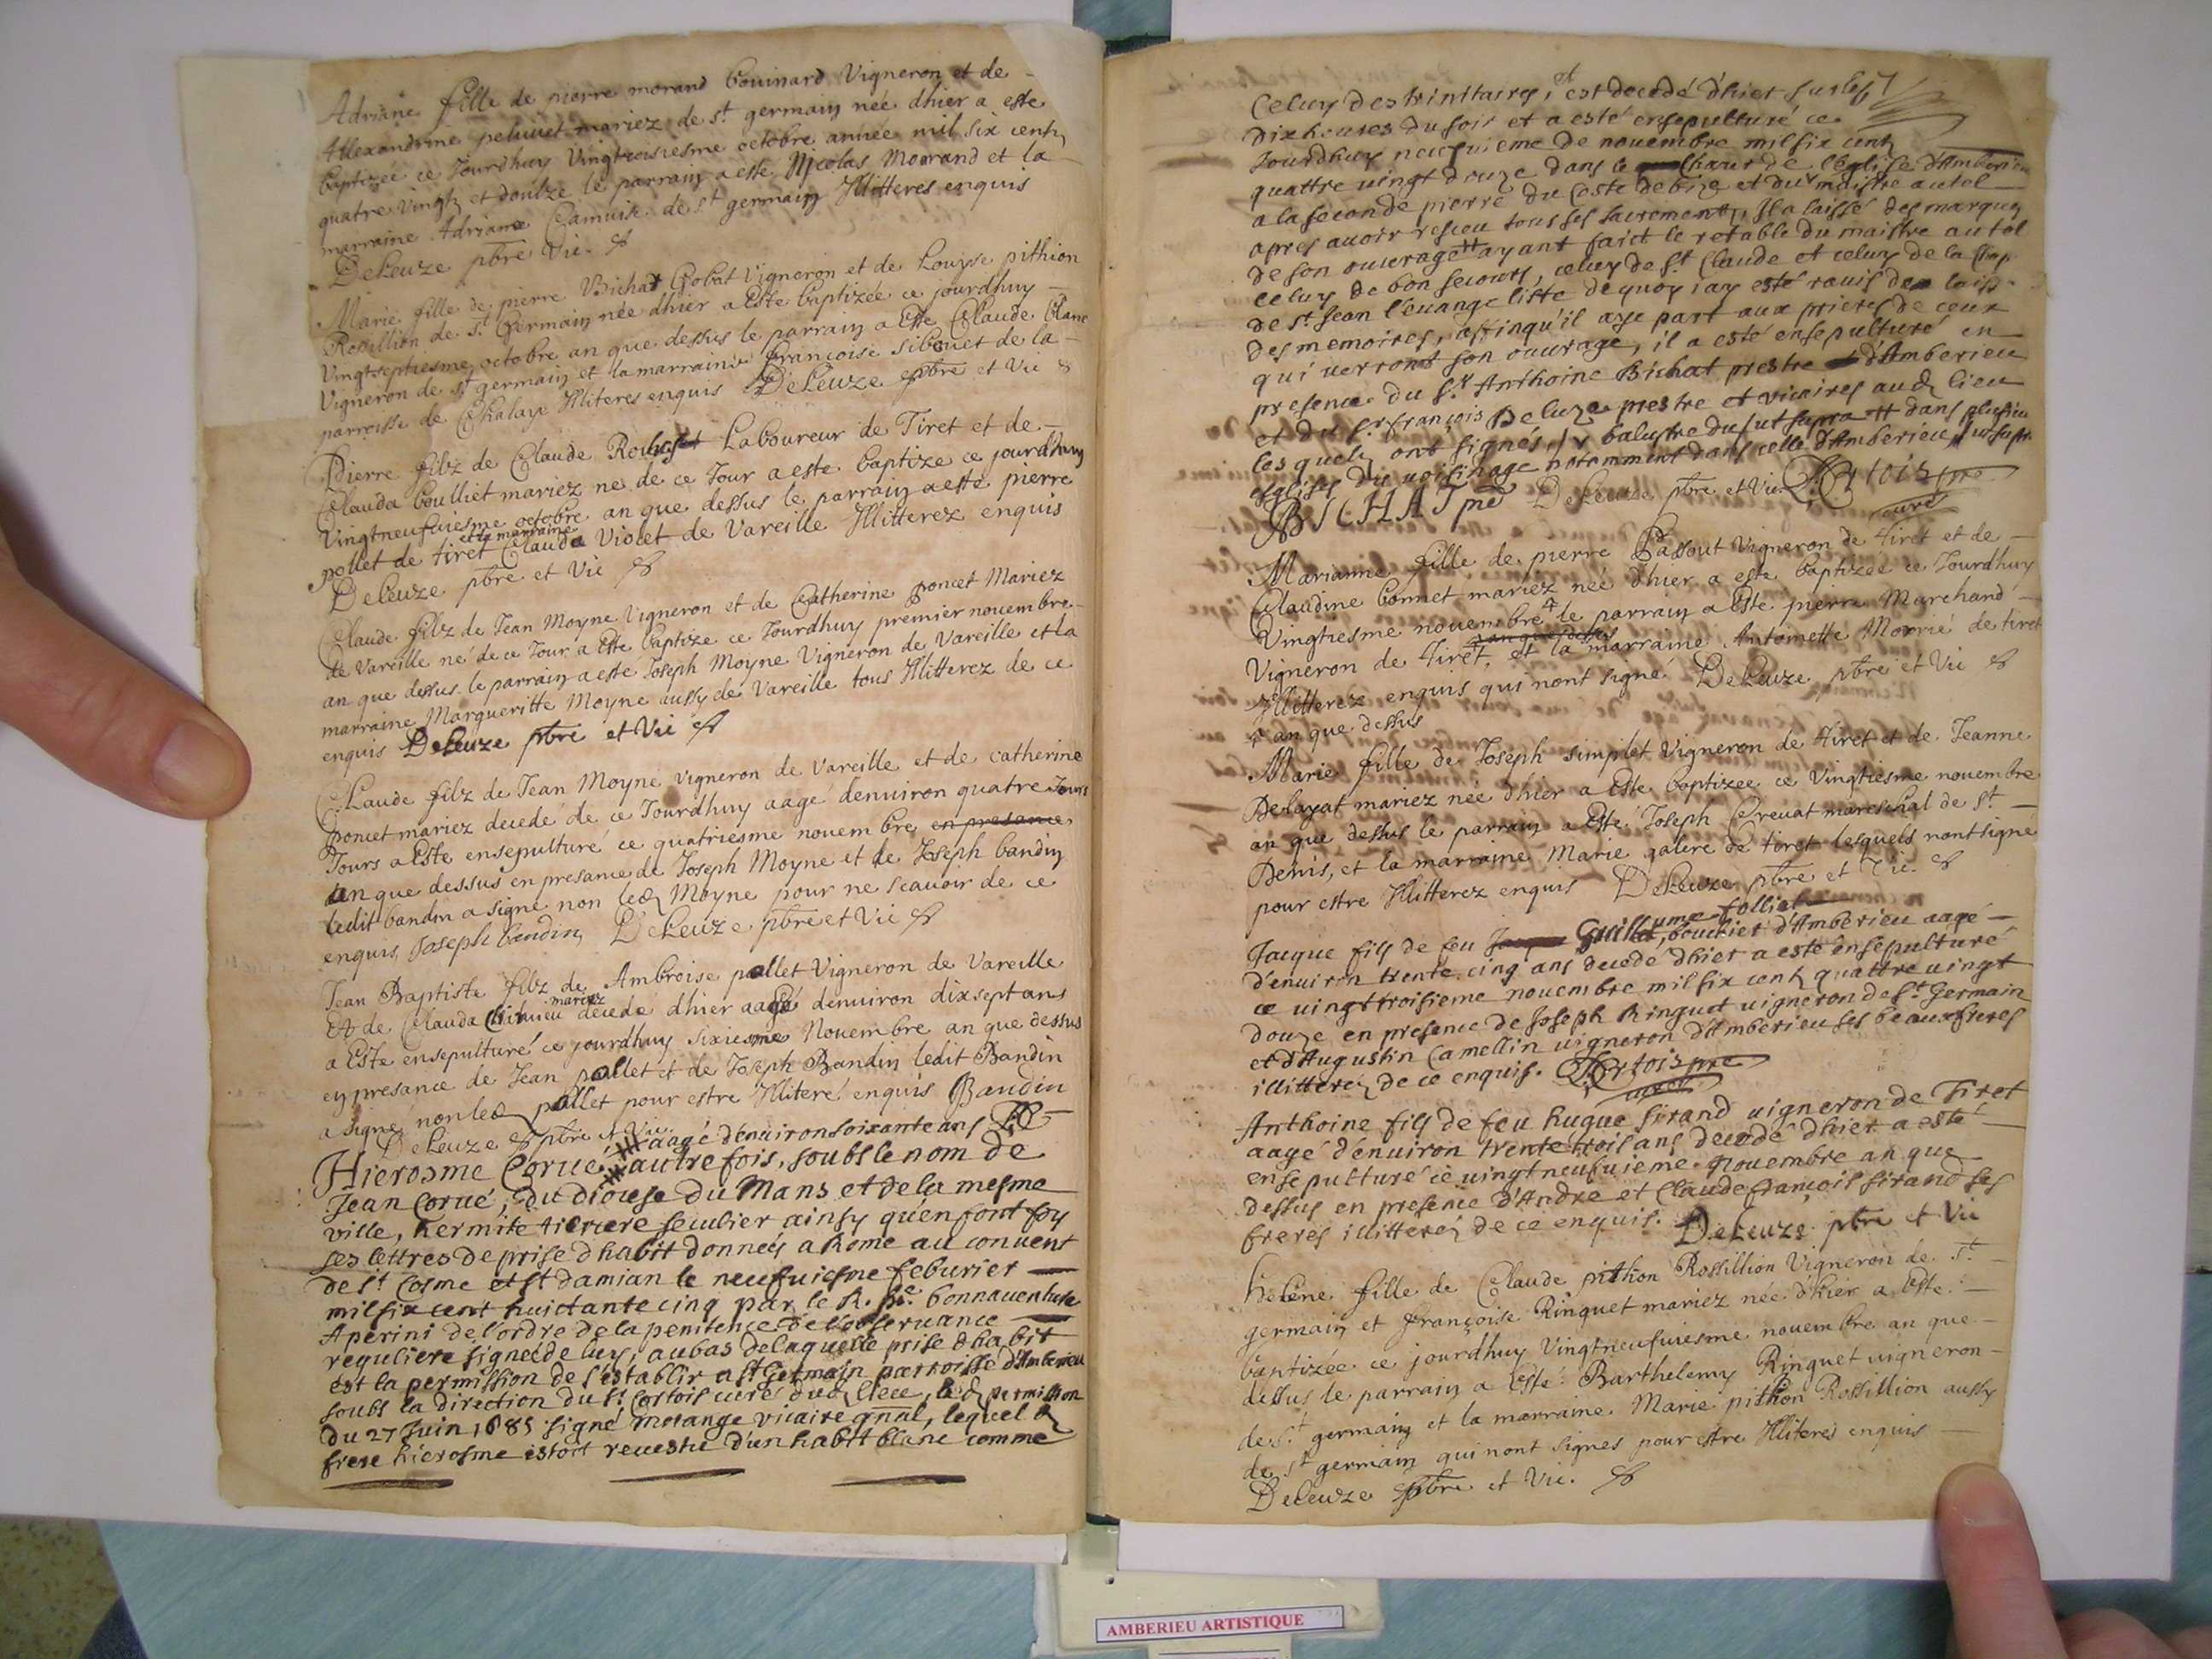 Adriane fille de pierre morand bouinard Vigneron et de
Allexandrine peluuet mariez de st germain née dhier a este
baptizée ce Jourdhuy Vingtroisiesme octobre année mil six centz
quatre Vingtz et doutze le parrain a esté Nicolas Morand et la
marraine Adriane Camuise de st germain Illitteres enquis
DeLeuze pbre Vic.
Marie fille de pierre Bichat Gobat Vigneron et de Louyse pithion
Rossillion de st Germain née dhier a Esté baptizée ce jourdhuy
Vingtseptiesme octobre an que dessus le parrain a Esté Claude blanc
Vigneron de st germain et la marraine françoise sibouet de la
parroisse de Chalaye Illiteres enquis DeLeuze pbre et Vic
Pierre filz de Claude Laboureur de Tiret et de
Clauda boulliet mariez ne de ce Jour a este baptize ce jourdhuy
Vingtneufuiesme octobre an que dessus le parrain a esté pierre
et la marraine
pollet de tiret Clauda Violet de Vareille Illitterez enquis
DeLeuze pbre et Vic
Claude filz de Jean Moyne Vigneron et de Catherine poncet Mariez
de Vareille né de ce Jour a Esté baptize ce Jourdhuy premier nouembre
an que dessus le parrain a esté Joseph Moyne Vigneron de Vareille et la
marraine Margueritte Moyne aussy de Vareille tous Illitterez de ce
enquis DeLeuze pbre et Vic
Claude filz de Jean Moyne vigneron de Vareille et de catherine
poncet mariez decedé de ce Jourdhuy aagé denuiron quatre Jours
Jours a Esté ensepulturé ce quatriesme nouembre en presance
an que dessus en presance de Joseph Moyne et de Joseph bandin
ledit bandin a signe non led Moyne pour ne scauoir de ce
enquis Joseph bandin DeLeuze pbre et Vic
Jean Baptiste filz de Ambroise pollet Vigneron de Vareille
mariez
Et de Clauda decedé dhier aagé denuiron dixsept ans
a Esté ensepulturé ce jourdhuy sixiesme Nouembre an que dessus
en presance de Jean pollet et de Joseph Bandin ledit Bandin
a signé non led pollet pour estre Illiteré enquis Bandin
DeLeuze pbre et Vic
aagé d'enuiron soixante ans
Hierosme Corué autrefois, soubs le nom de
Jean Corué, du diocese du Mans et de la mesme
ville, hermite tiercere seculier ainsy qu'en font foy
ses lettres de prise d'habit donneés a Rome au conuent
de st Cosme et st damian le neufuiesme feburier
mil six cent huictante cinq par le R. pe. bonnauenture
Aperini de l'ordre de la penitence de l'obseruance
reguliere signeé de luy, au bas de laquelle prise d'habit
est la permission de s'establir a st Germain parroisse d'Amberieu
soubs la direction du sr Cortois curé dud lieu, lad permission
du 27 Juin 1685 signé morange vicaire gnal, lequel d
frere hierosme estoit reuestu d'un habit blanc comme
Celuy des trinitaires, est decedé d'hier sur les
dix heures du soir et a esté ensepulturé ce
Jourdhuy neufuieme de nouembre mil six centz
quattre uingt douze dans le Chœur de l'église d'Amberieu
a la seconde pierre du Costé de bize et du maistre autel
apres auoir receu tous ses sacrements, Il a laissé des marques
de son ouurage ayant faict le retable du maistre autel
celuy de bon secours, celuy de st Claude et celuy de la Chap.
de st Jean l'euangeliste dequoy i'ay esté rauis de laiss.
des memoires, affinqu'il aye part aux prieres de ceux
qui uerront son ouurage, il a esté ensepulturé en
presence du sr Anthoine Bichat prestre d'Amberieu
et du sr françois Deluze prestre et vicaires aud lieu
lesquels ont signés balustre du ut supra dans plusieu
eglises du uoisinage notamment dans celle d'Amberieu ut supra
BICHAT pre DeLeuze pbre et Vic. Cortois pre
curé
Marianne fille de pierre Passout Vigneron de tiret et de
Claudine bonnet mariez née dhier a este baptizée ce Jourdhuy
Vingtiesme nouembre le parrain a Esté pierre Marchand
an que dessus
Vigneron de tiret, et la marraine Antoinette Morrié de tiret
Illitterez enquis qui nont signé DeLeuze pbre et Vic
an que dessus
Marie fille de Joseph simplet Vigneron de tiret et de Jeanne
Delayat mariez née dhier a Esté baptizee ce Vingtiesme nouembre
an que dessus le parrain a Esté Joseph Creuat mareschal de st
Denis, et la marraine Marie galere de tiret lesquels nont signé
pour estre Illitterez enquis DeLeuze pbre et Vic.
Jacque fils de feu Guillaume folliet, bouchier d'Amberieu aagé
d'enuiron trente cinq ans decedé dhier a esté ensepulturé
ce uingt troisieme nouembre mil six centz quattre uingt
douze en presence de Joseph Ringuet uigneron de st Germain
et d'Augustin Camellin uigneron d'Amberieu ses beauxfreres
illitterez de ce enquis. Cortois pre
curé
Anthoine fils de feu hugue sirand uigneron de Tiret
aagé d'enuiron trente trois ans decedé d'hier a esté
ensepulturé ce uingt neufuieme nouembre an que
dessus en presence d'Andre et Claude françois sirand ses
freres illitterez de ce enquis. DeLeuze pbre et Vic
helène fille de Claude pithion Rossillion Vigneron de st
germain et françoise Ringuet mariez née dhier a este
baptizée ce jourdhuy Vingtneufuiesme nouembre an que
dessus le parrain a esté Barthelemy Ringuet uigneron
de st germain et la marraine Marie pithon Rossillion aussy
de st germain qui nont signes pour estre Illiterés enquis
DeLeuze pbre et Vic.
AMBERIEU ARTISTIQUE